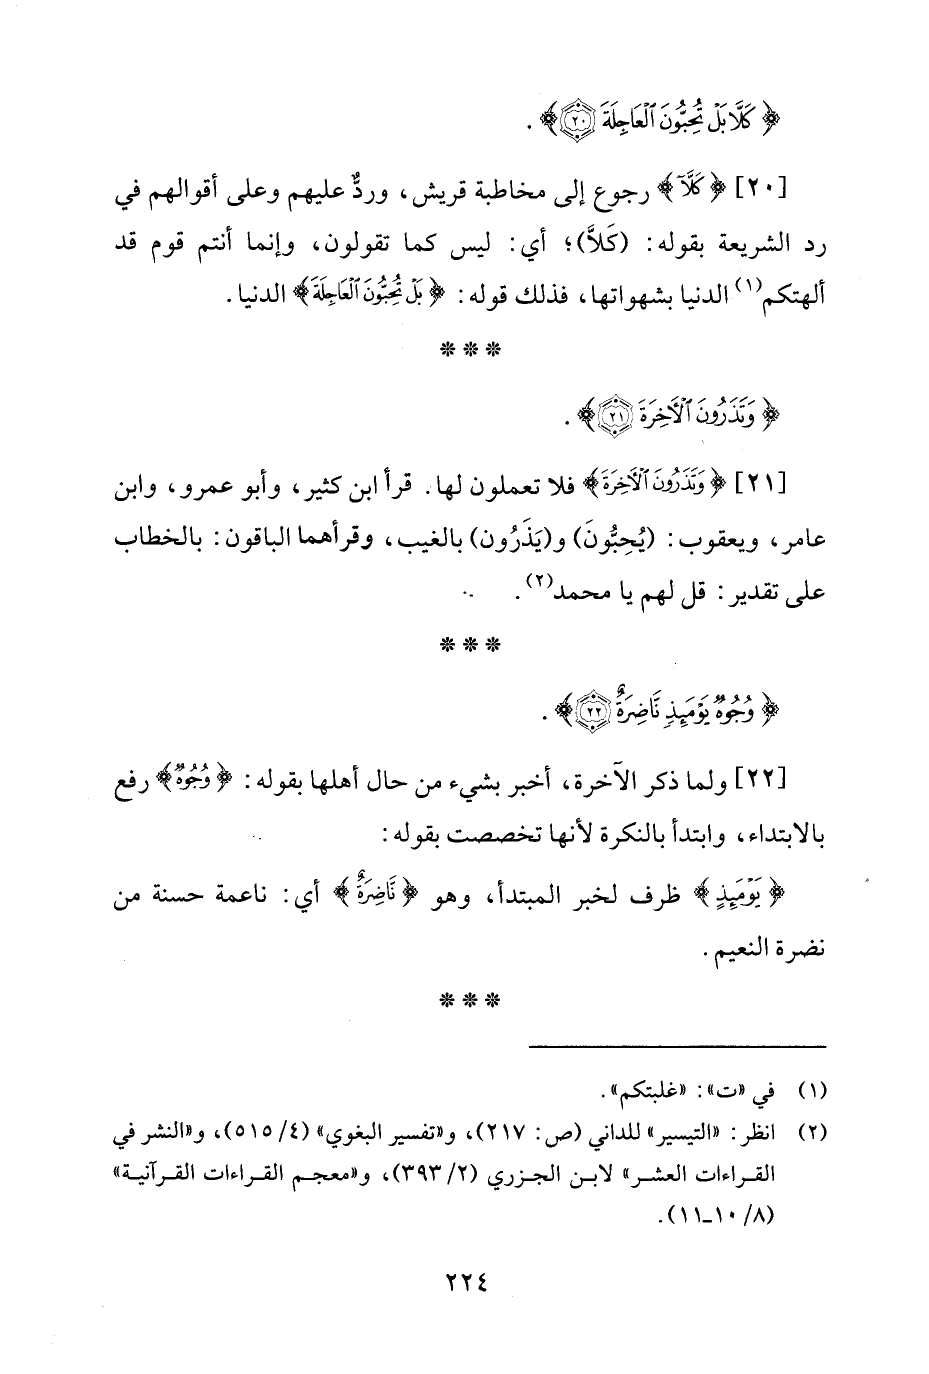 ﴿ كَلَّا بَلْ تُحِبُّونَ ٱلْعَاجِلَةَ ﴿٢٠﴾ ﴾ .
[٢٠] ﴿ كَلَّآ ﴾ رجوع إلى مخاطبة قريش، وردٌّ عليهم وعلى أقوالهم في
رد الشريعة بقوله: (كَلاَّ)؛ أي: ليس كما تقولون، وإنما أنتم قوم قد
ألهتكم(١) الدنيا بشهواتها، فذلك قوله: ﴿ بَلْ تُحِبُّونَ ٱلْعَاجِلَةَ ﴾ الدنيا.
* * *
﴿ وَتَذَرُونَ ٱلْأَخِرَةَ ﴿٢١﴾ ﴾ .
[٢١] ﴿ وَتَذَرُونَ ٱلْأَخِرَةَ ﴾ فلا تعملون لها. قرأ ابن كثير، وأبو عمرو، وابن
عامر، ويعقوب: (يُحِبُّونَ) و(يَذَرُون) بالغيب، وقرأهما الباقون: بالخطاب
على تقدير: قل لهم يا محمد(٢).
* * *
﴿ وُجُوهٌ يَوْمَئِذٍ نَّاضِرَةٌ ﴿٢٢﴾ ﴾ .
[٢٢] ولما ذكر الآخرة، أخبر بشيء من حال أهلها بقوله: ﴿ وُجُوهٌ ﴾ رفع
بالابتداء، وابتدأ بالنكرة لأنها تخصصت بقوله:
﴿ يَوْمَئِذٍ ﴾ ظرف لخبر المبتدأ، وهو ﴿ نَّاضِرَةٌ ﴾ أي: ناعمة حسنة من
نضرة النعيم.
* * *
(١) في «ت»: «غلبتكم».
(٢) انظر: «التيسير» للداني (ص: ٢١٧)، و«تفسير البغوي» (٤/ ٥١٥)، و«النشر في
القراءات العشر» لابن الجزري (٢/ ٣٩٣)، و«معجم القراءات القرآنية»
(٨/ ١٠-١١).
٢٢٤